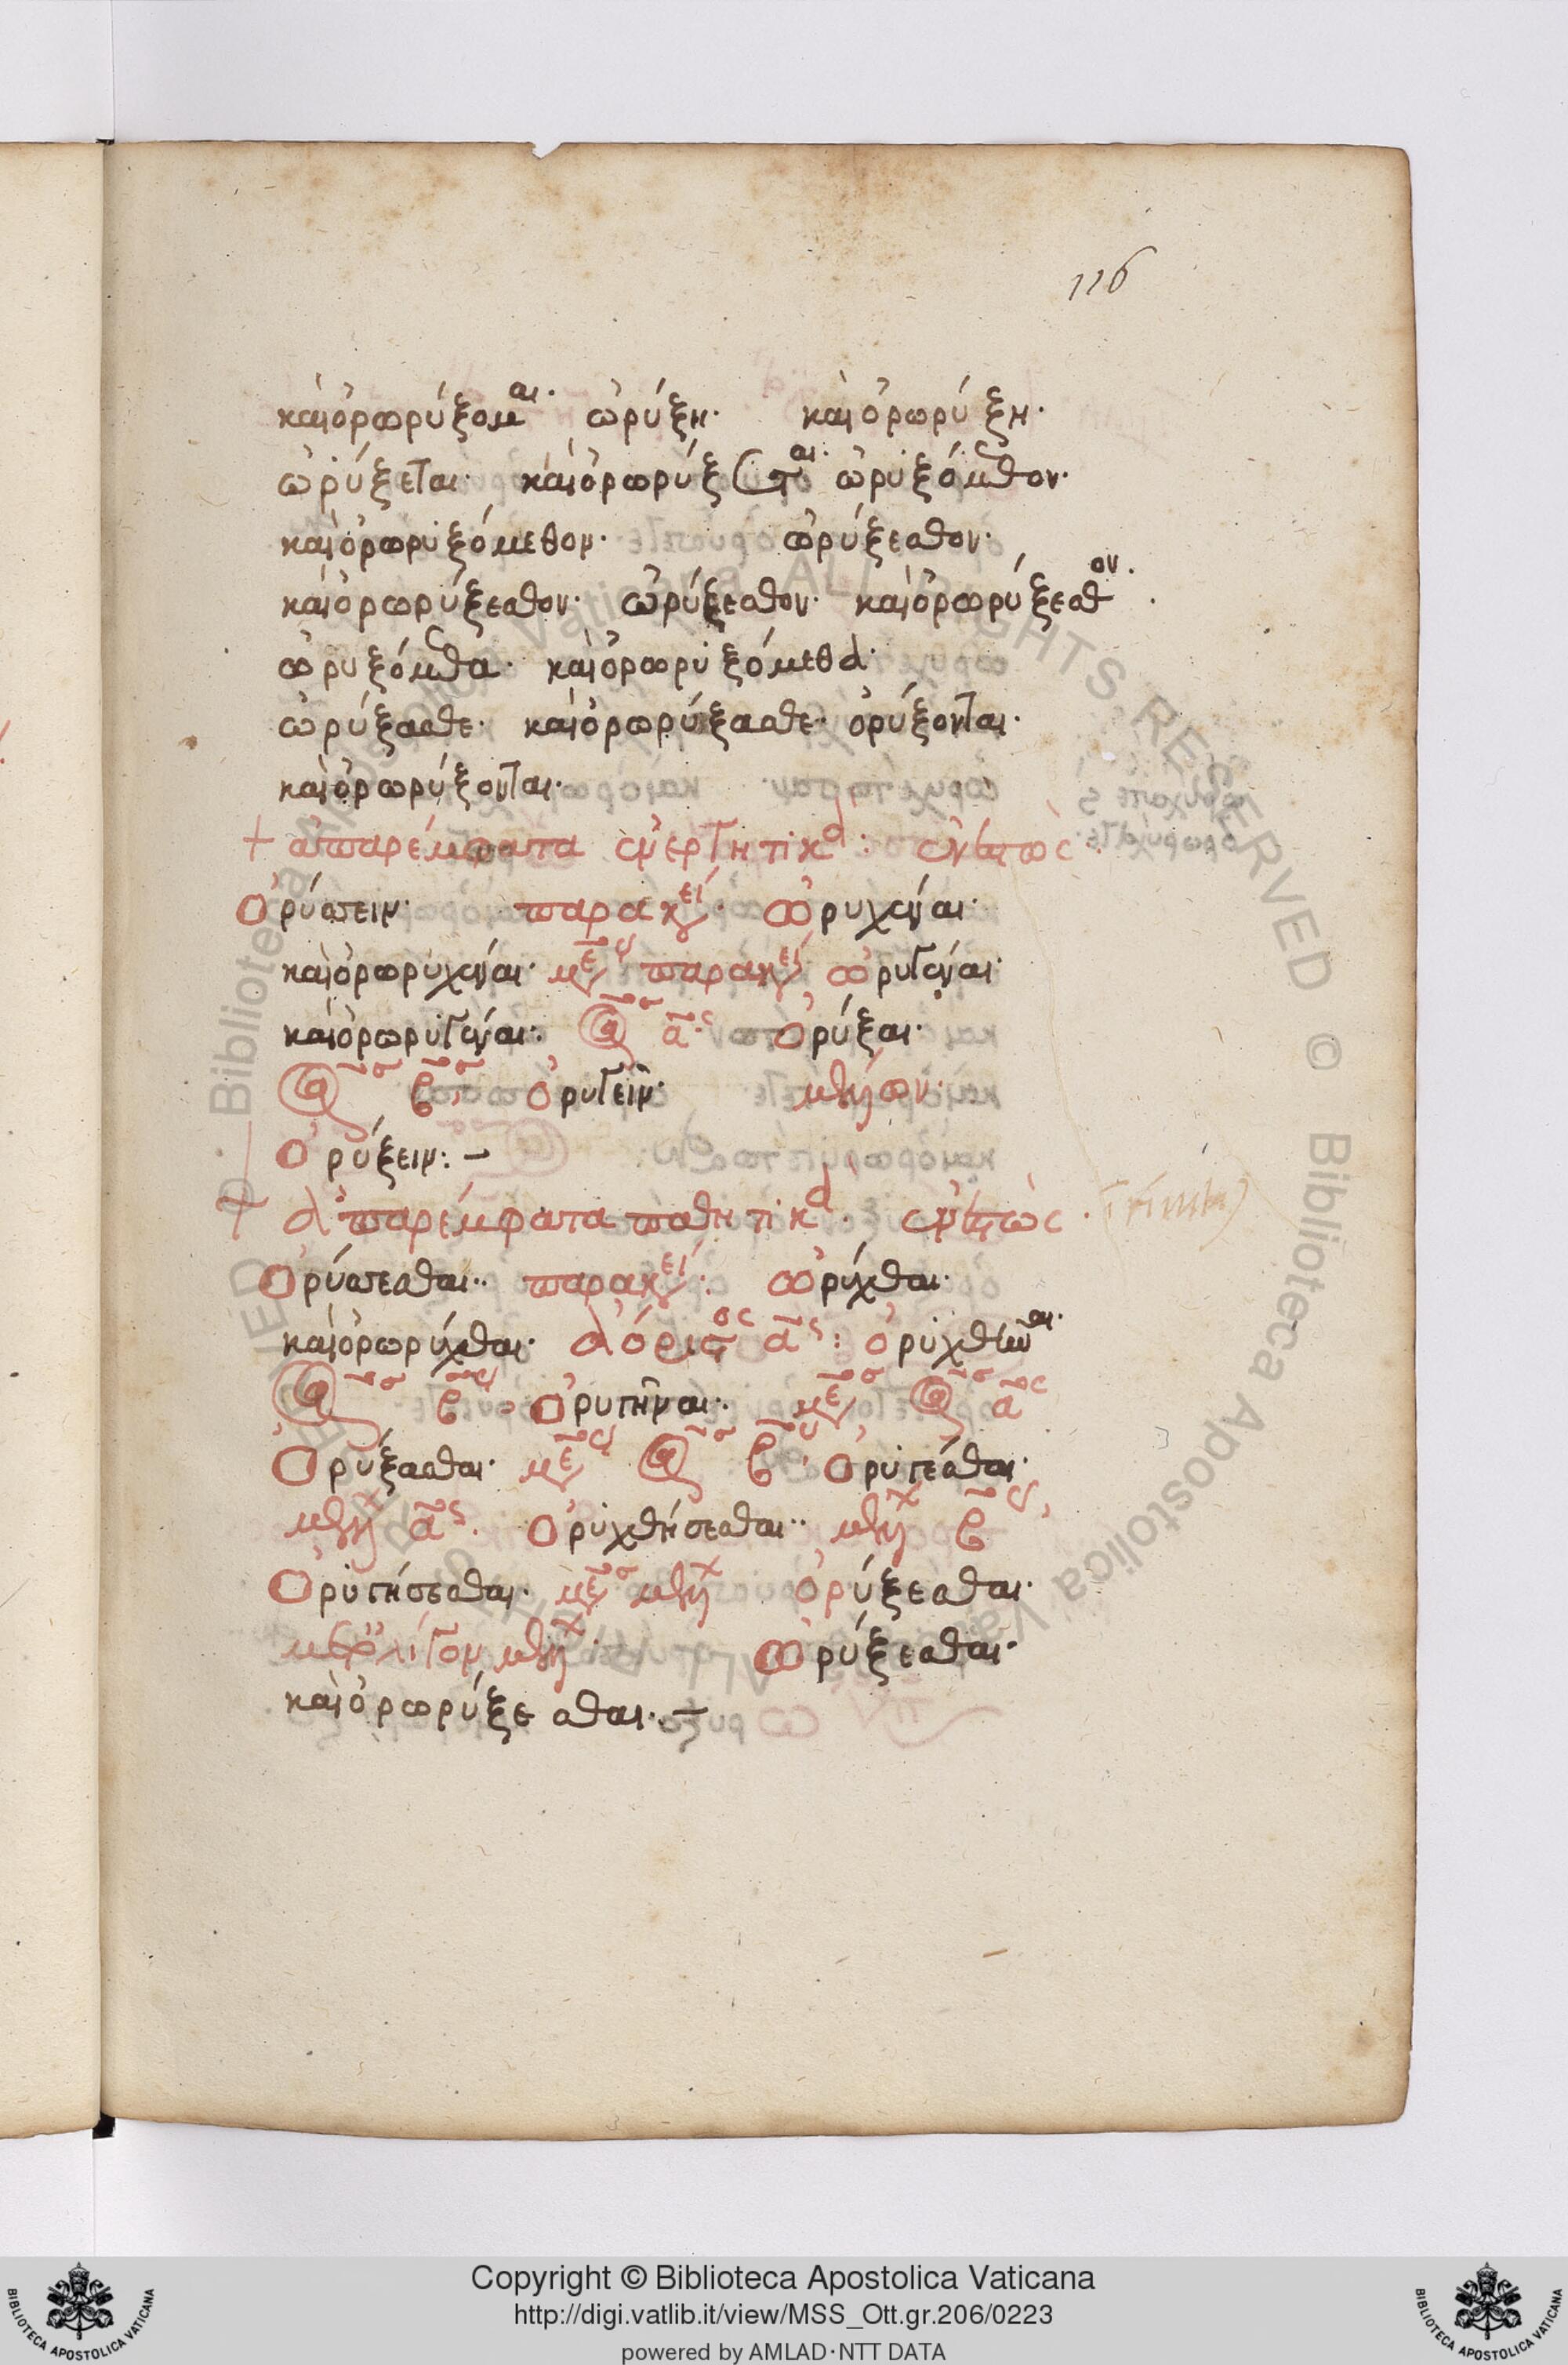 116
καὶ ὀρωρύξομαι· ὠρύξη· καὶ ὀρωρύξη·
ὠρύξεται· καὶ ὀρωρύξεται· ὠρυξόμεθον·
καὶ ὀρωρυξόμεθον· ὠρύξεσθον·
καὶ ὀρωρύξεσθον· ὠρύξεσθον· καὶ ὀρωρύξεσθον·
ὠρυξόμεθα· καὶ ὀρωρυξόμεθα·
ὠρύξασθε· καὶ ὀρωρύξασθε· ὀρύξονται·
καὶ ὀρωρύξονται·
+ ἀπαρέμφατα ἐνεργητικά: ἐνεστὼς·
Ὀρύσσειν· παρακει· ὠρυχέναι·
καὶ ὀρωρυχέναι· μες παρακει ὠρυγέναι·
καὶ ὀρωρυγέναι· ας Ὀρύξαι·
βς Ὀρυγεῖν· μέλλων·
Ὀρύξειν:–
+ ἀπαρέμφατα παθητικά· ἐνεστὼς·
Ὀρύσσεσθαι·· παρακει: ὠρύχθαι·
καὶ ὀρωρύχθαι· ἀόριστος ας: ὀρυχθῆναι·
βς Ὀρυγῆναι·· μες ας
Ὀρύξασθαι· μες β· Ὀρυγέσθαι·
μελλ ας· Ὀρυχθήσεσθαι·· μελλ βς
Ὀρυγήσεσθαι· μες μελλ ὀρύξεσθαι·
μετ' ὀλίγον μελλ· ὠρύξεσθαι·
καὶ ὀρωρύξεσθαι·–
Copyright © Biblioteca Apostolica Vaticana
http://digi.vatlib.it/view/MSS_Ott.gr.206/0223
powered by AMLAD·NTT DATA
BIBLIOTECA APOSTOLICA VATICANA
BIBLIOTECA APOSTOLICA VATICANA